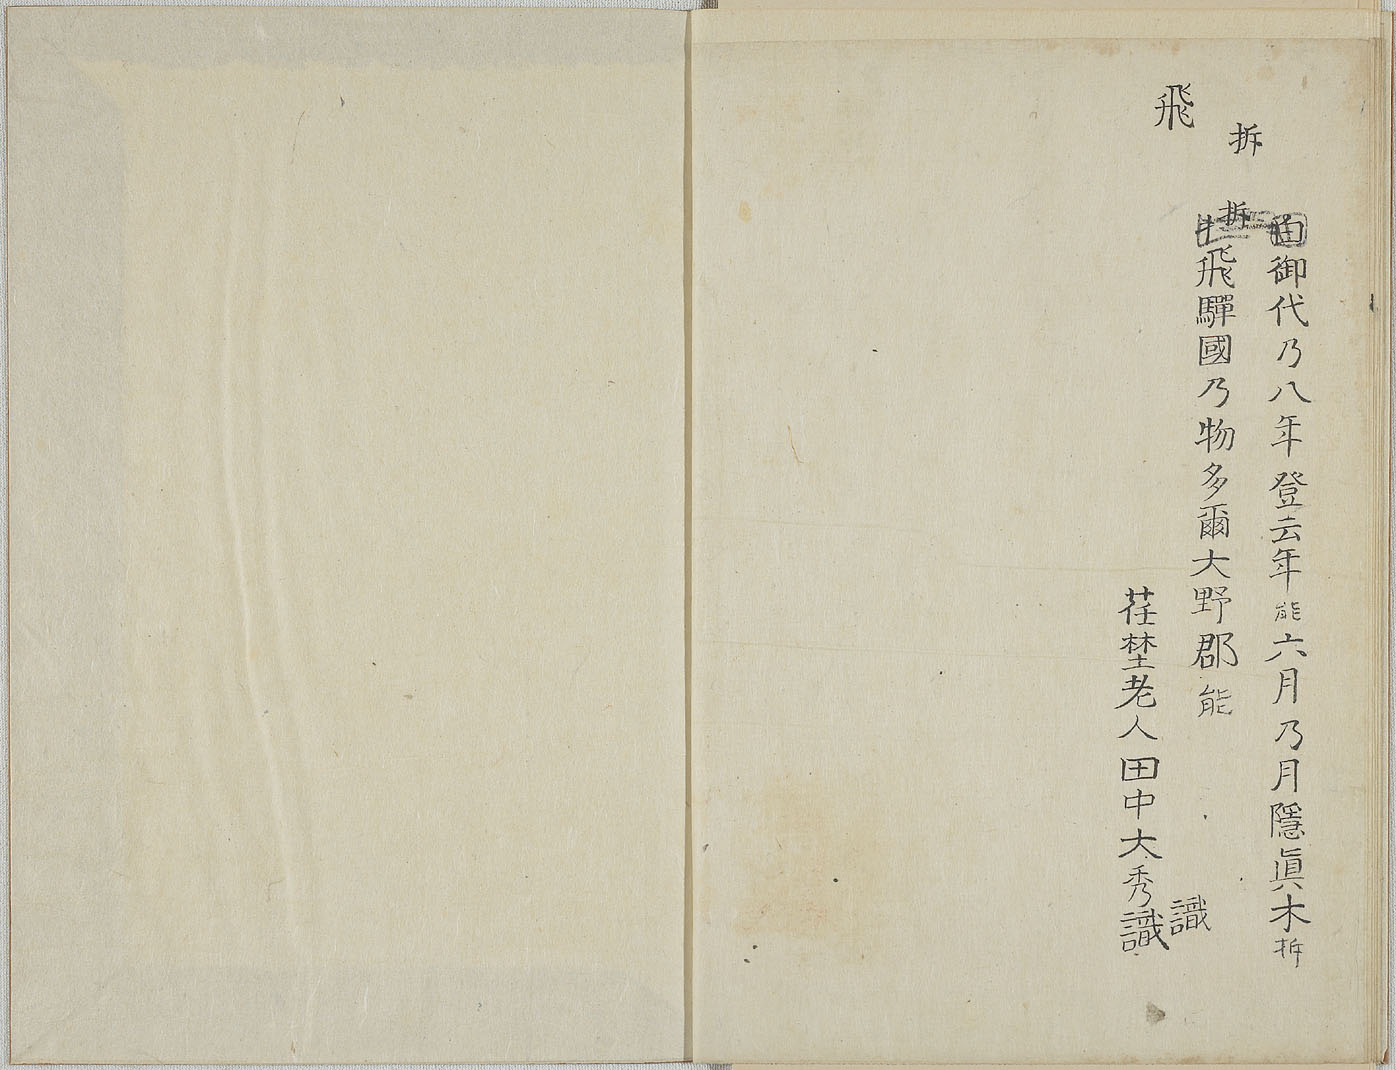 御代乃八年登云年能六月乃月隱眞木拆
拆
拆
飛驒國乃物多爾大野郡能
飛
識
荏埜老人田中大秀識